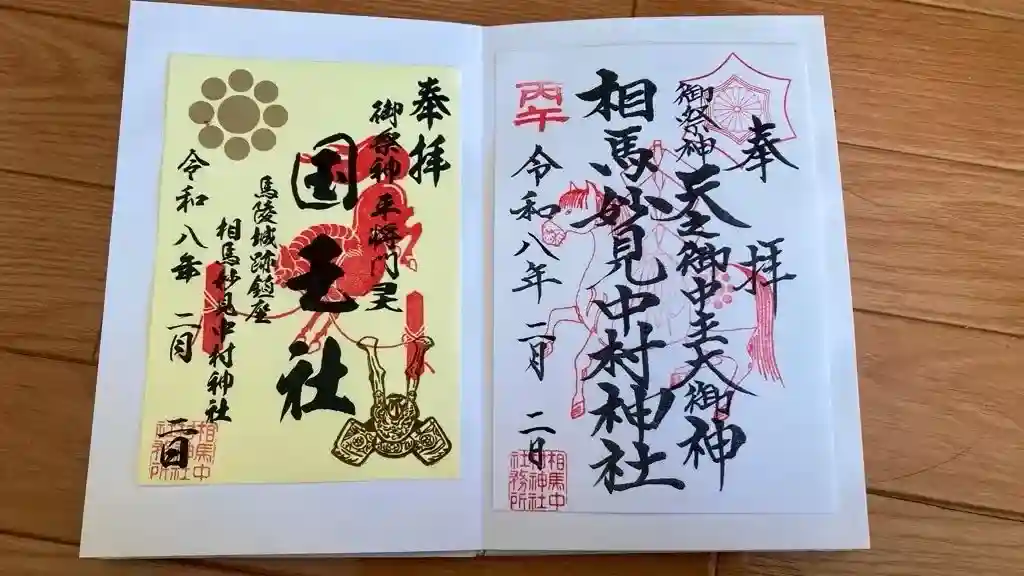 奉拝
御祭神 天之御中主大御神
相馬妙見中村神社
丙午
令和八年 二月 二日
相馬中
村神社
社務所
奉拝
御祭神 平将門王
国王社
馬陵城跡鎮座
相馬妙見中村神社
令和八年 二月 二日
相馬中
村神社
社務所